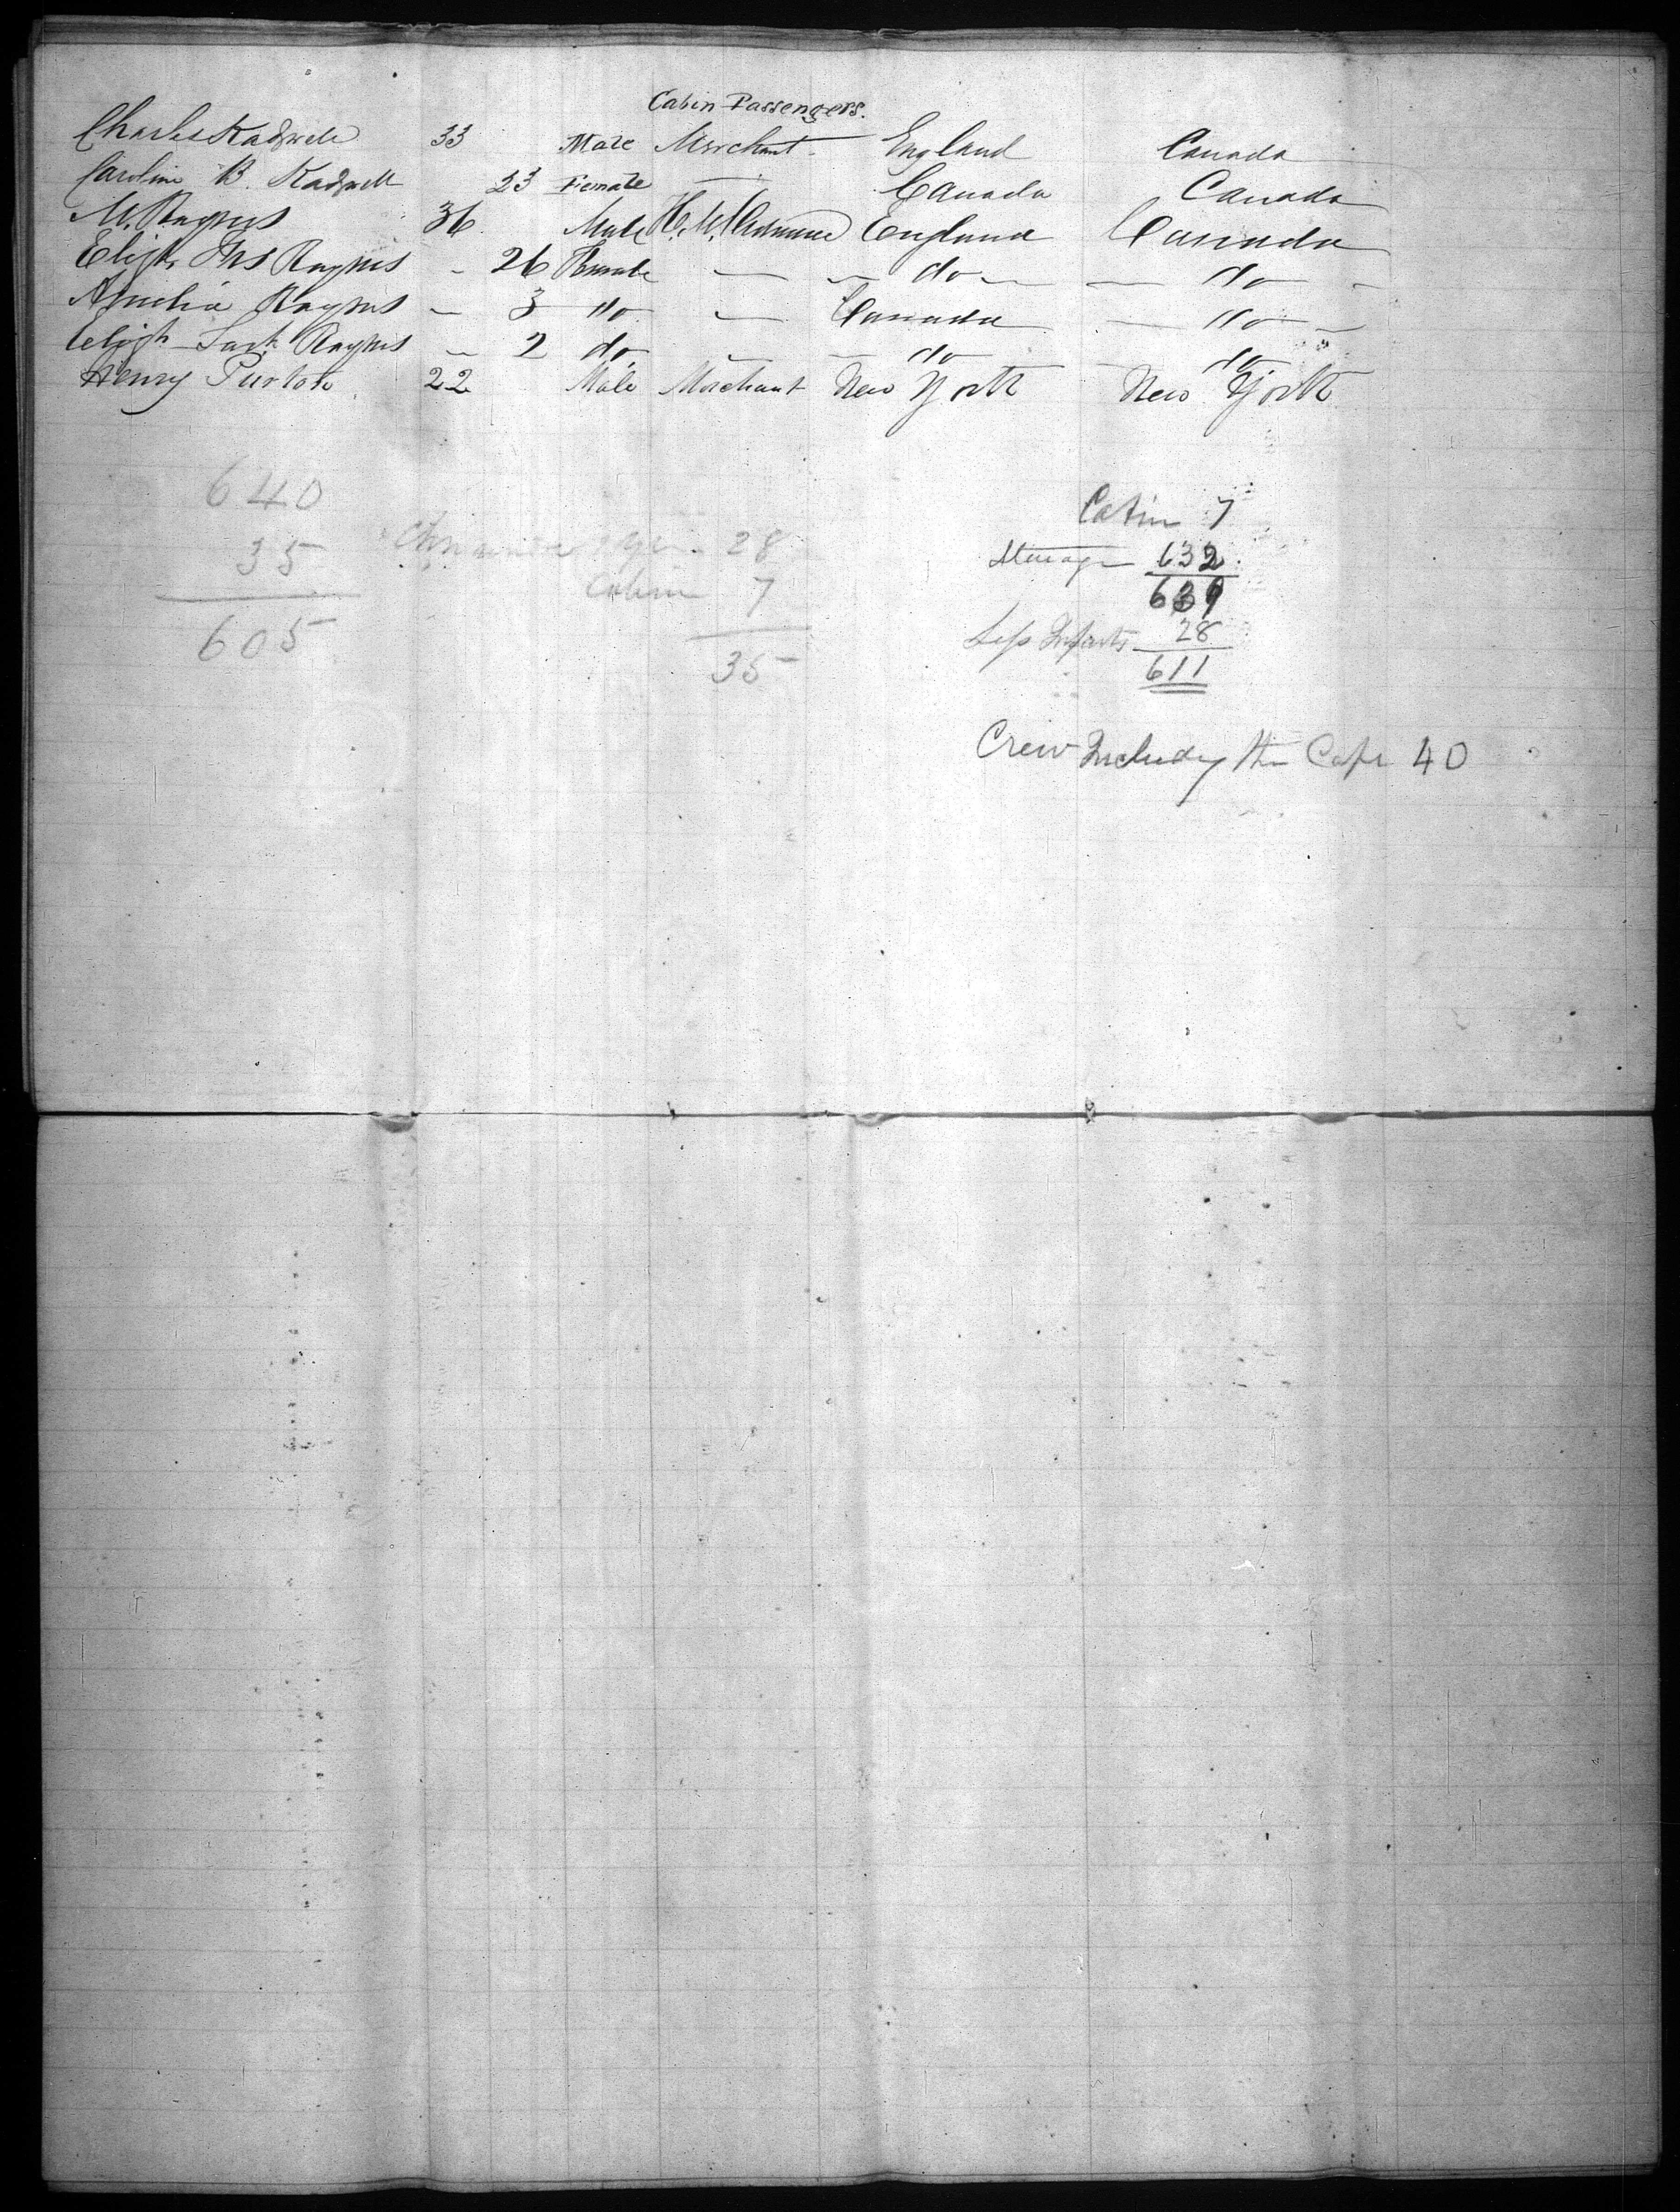 Cabin Passengers.
Charles Kadwell 33 Male Merchant England Canada
Caroline B. Kadwell 23 Female — Canada Canada
M. Raynes 36 Male England Canada
Elizth Raynes — 26 Female — — do — — do —
Amelia Raynes — 3 do — Canada — do —
Elizth Raynes — 2 do — — do — do
Henry Purton 22 Male Merchant New York New York
640
35
605
28
Cabin 7
35
Cabin 7
Steerage 632
639
Less Infants 28
611
Crew Including the Capt 40